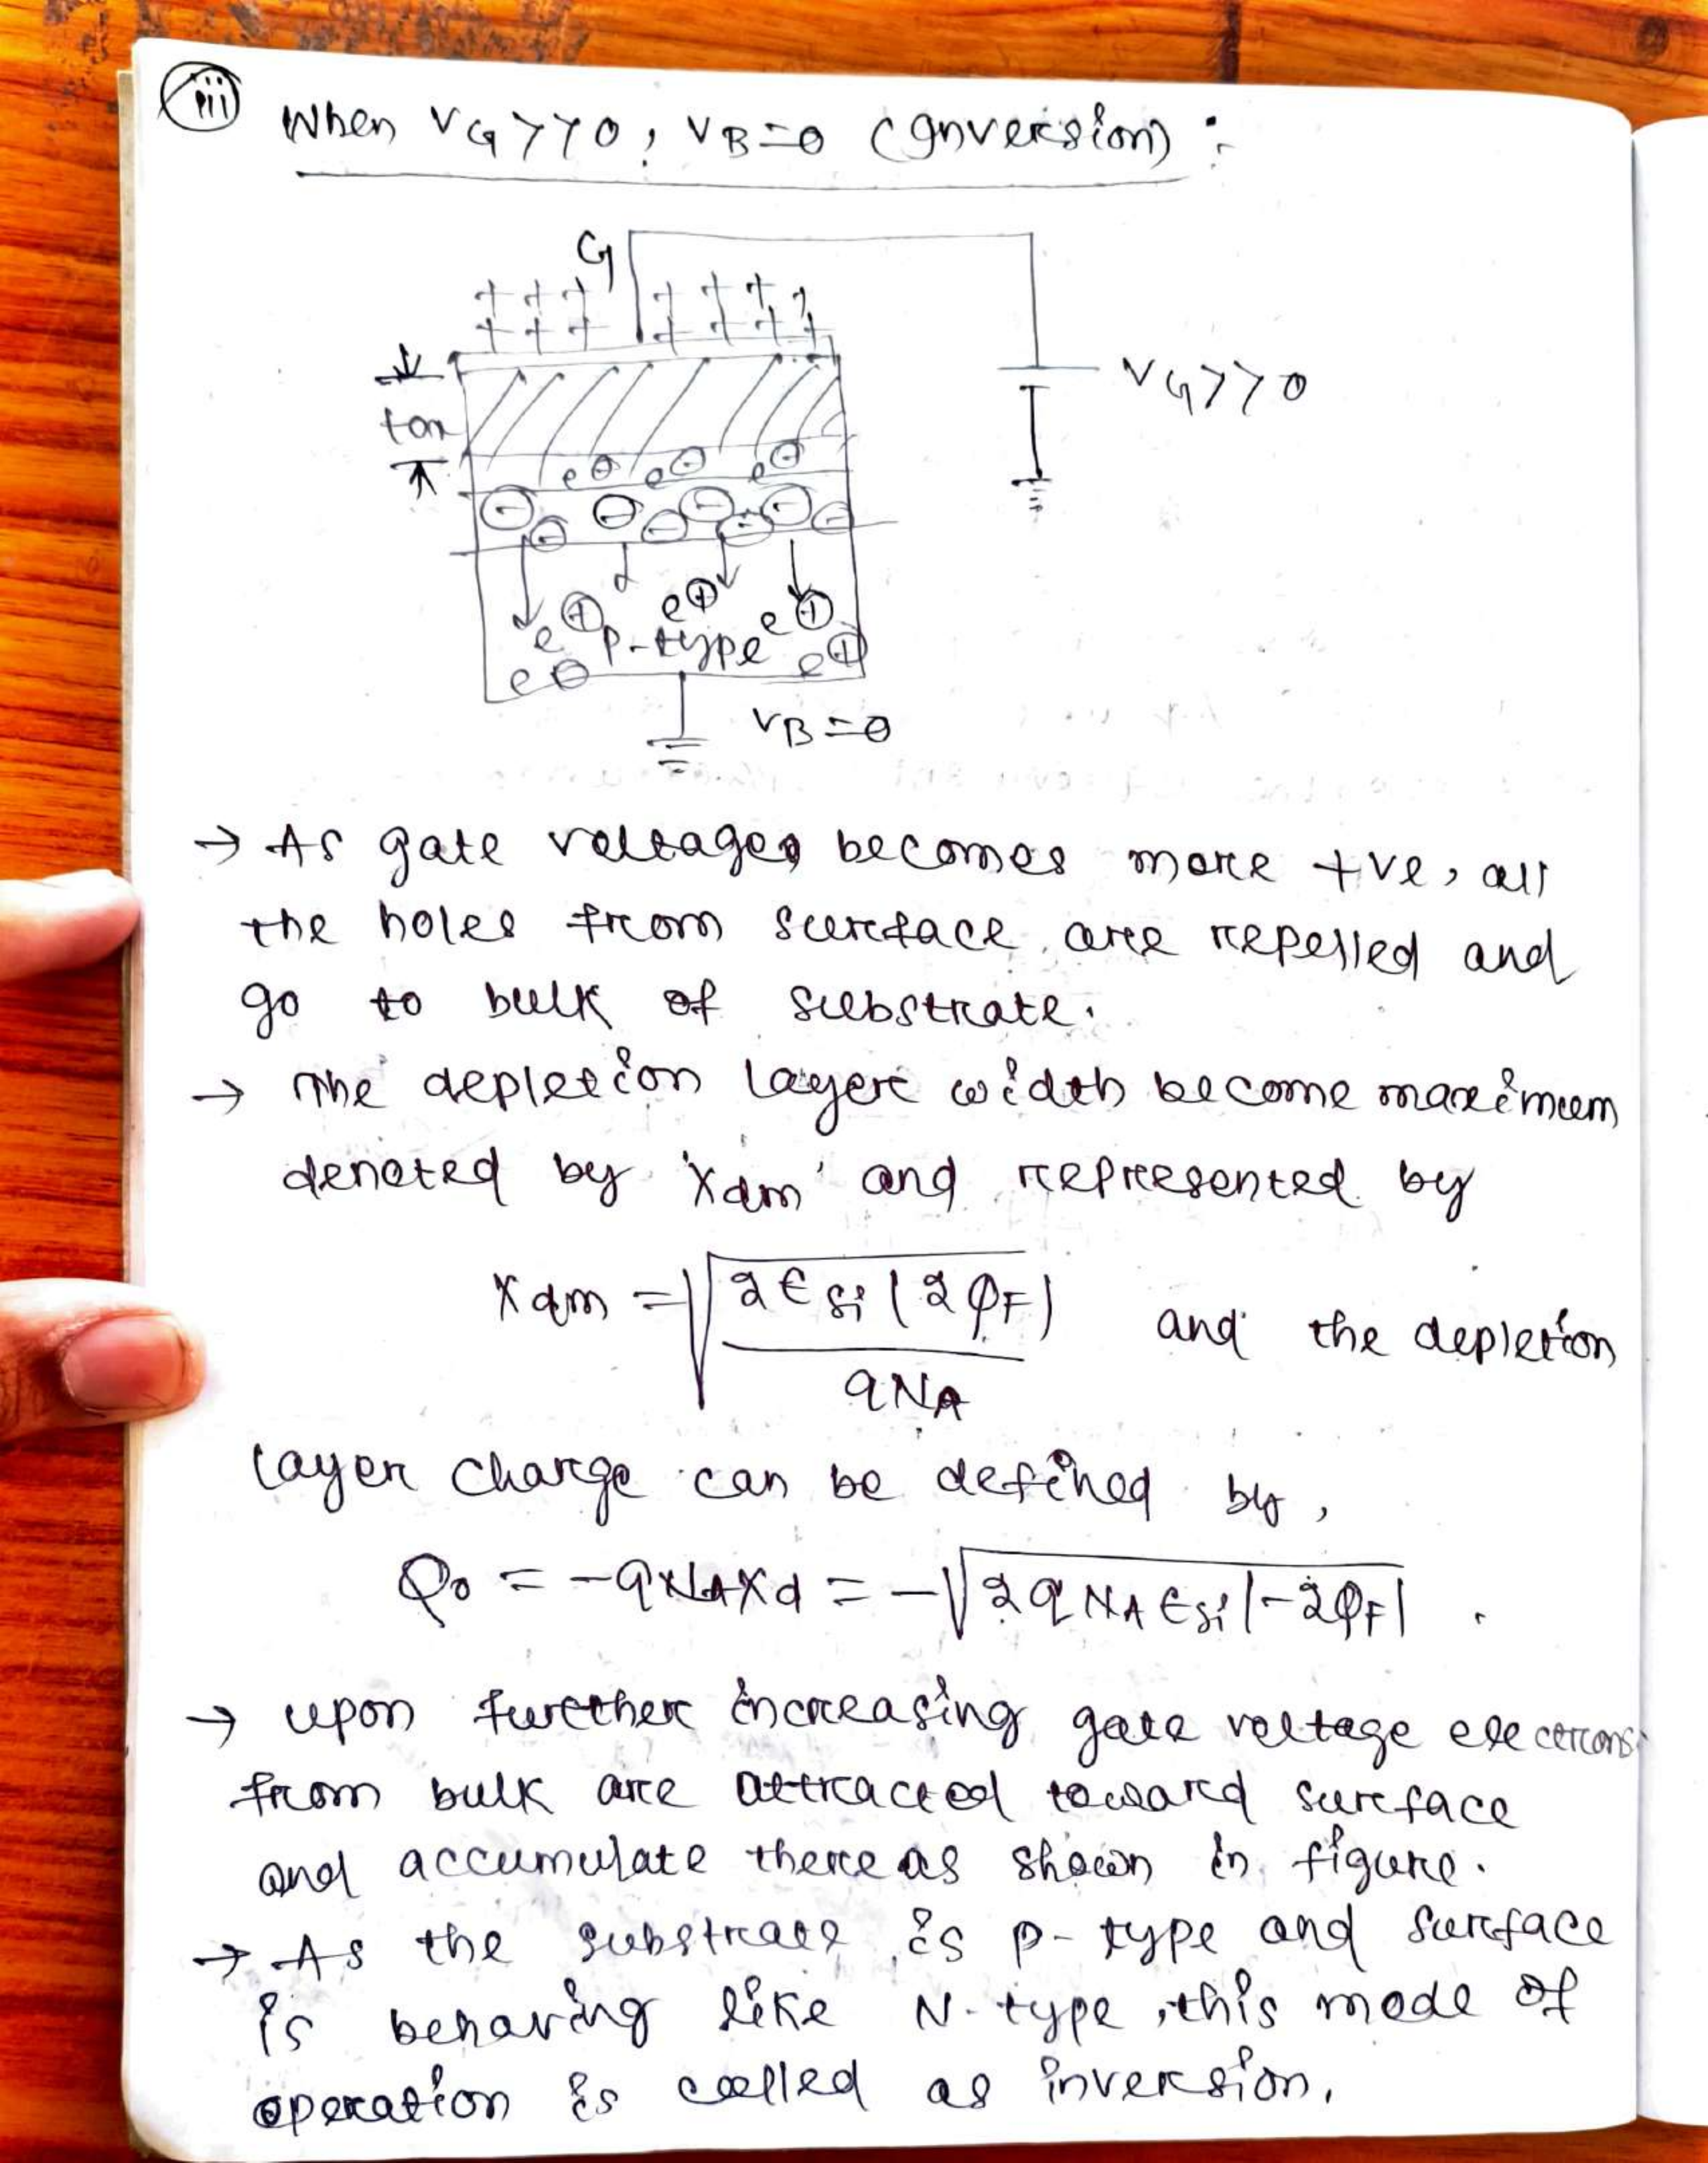 (iii) When VG>>0, VB=0 (Inversion) :
G
+ + + + + + +
+ + + + + + +
VG>>0
tox
e⊖ e⊖ e⊖
⊖ ⊖ ⊖ ⊖ ⊖ ⊖ ⊖ ⊖
e⊕ e⊕ e⊕
p-type
e⊖ e⊕
VB=0
→ As gate voltage becomes more +ve, all
the holes from surface are repelled and
go to bulk of substrate.
→ The depletion layer width become maximum
denoted by 'Xdm' and represented by
Xdm = √(2εsi |2φF| / qNA) and the depletion
layer charge can be defined by,
Q0 = -qNAXd = -√(2qNAεsi|-2φF|) .
→ upon further increasing gate voltage electrons
from bulk are attracted toward surface
and accumulate there as shown in figure.
→ As the substrate is p-type and surface
is behaving like N-type, this mode of
operation is called as inversion.